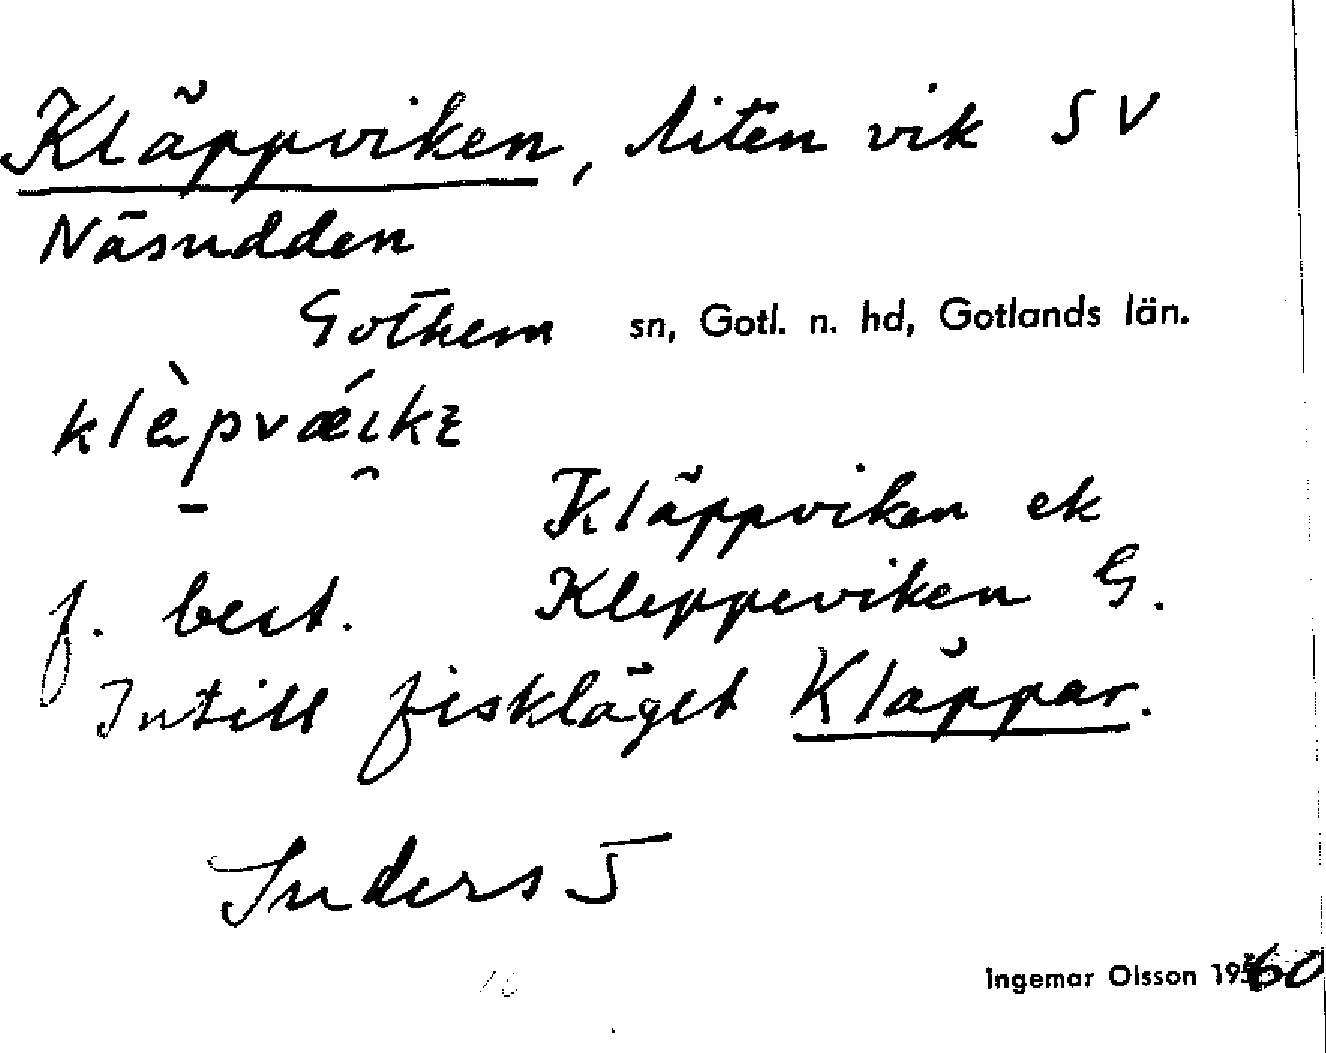 Kläppviken, liten vik SV
Näsudden
Gothem sn, Gotl. n. hd, Gotlands län.
klèpvǽikɛ
Kläppviken ek
f. best. Kleppeviken G.
Intill fiskläget Kläppar.
Suders 5
Ingemar Olsson 1960